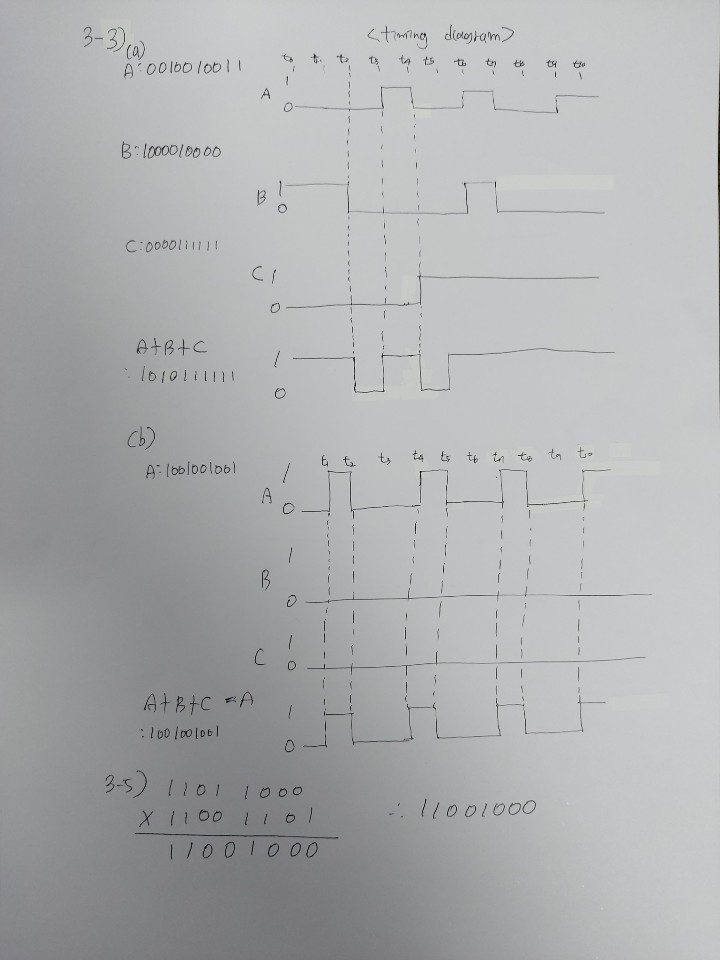 3-3)
(a)
<timing diagram>
A: 0010010011
t0 t1 t2 t3 t4 t5 t6 t7 t8 t9 t10
1
A
0
B: 1000010000
1
B
0
C: 0000111111
C 1
0
A+B+C
: 1010111111
1
0
(b)
t1 t2 t3 t4 t5 t6 t7 t8 t9 t10
A: 1001001001
1
A
0
1
B
0
1
C
0
A+B+C = A
: 1001001001
1
0
3-5) 1101 1000
X 1100 1101
11001000
∴ 11001000